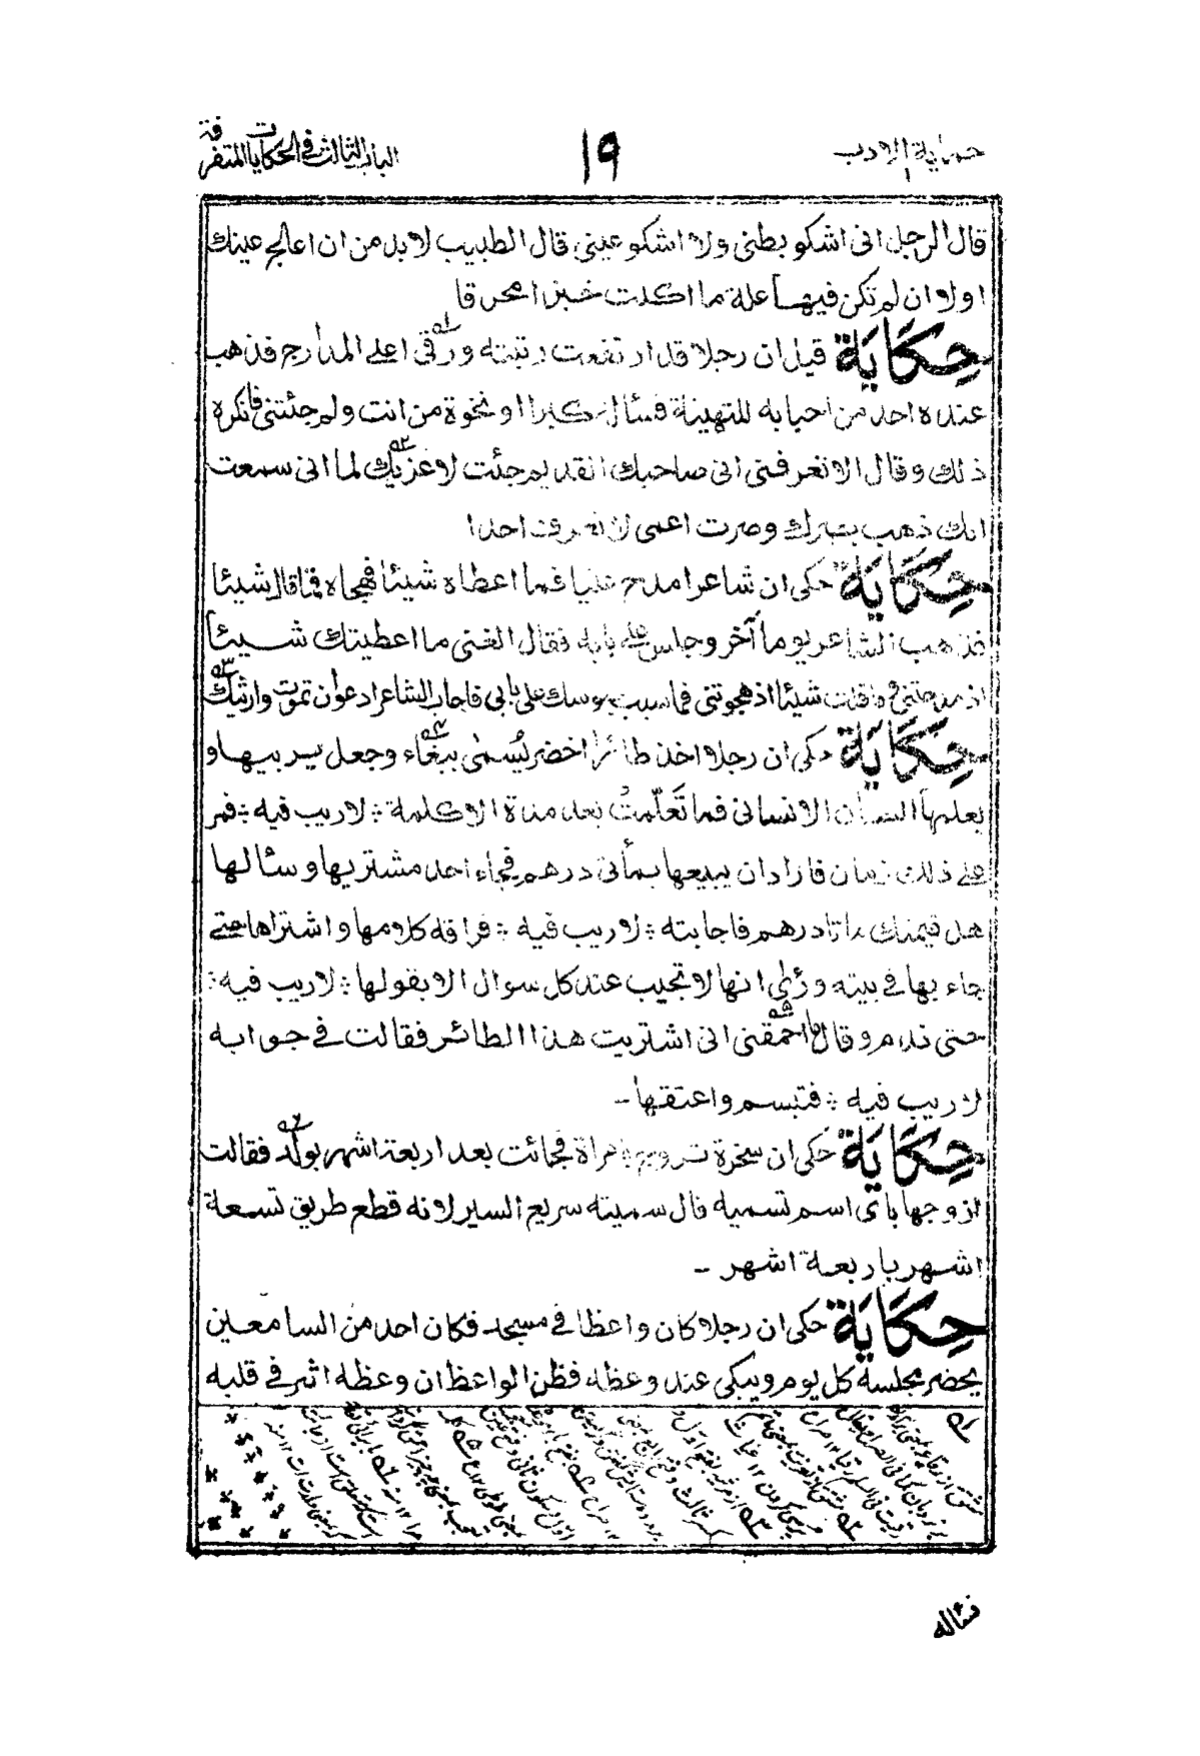 حماية الادب
١٩
الباب الثالث في الحكايات المتفرقة
قال الرجل انى اشكو بطنى ولا اشكو عينى قال الطبيب لا بد من ان اعالج عينك
اولا وان لم تكن فيها علة ما اكلت خبزا محرقا
حِكَايَة قيل ان رجلا قد ارتفعت رتبته ورقى اعلى المدارج فذهب
عنده احد من احبابه للتهنية فسأل كبرا او نخوة من انت ولم جئتنى فانكره
ذلك وقال الا تعرفنى انى صاحبك القديم جئت لاعزيك لما انى سمعت
انك ذهب بصرك وصرت اعمى لا تعرف احدا
حِكَايَة حكى ان شاعرا مدح غنيا فما اعطاه شيئا فهجاه فما قال شيئا
فذهب الشاعر يوما آخر وجلس على بابه فقال الغنى ما اعطيتك شيئا
اذ مدحتنى وما قلت شيئا اذ هجوتنى فما سبب جلوسك على بابى فاجاب الشاعر ادعو ان تموت وارثيك
حِكَايَة حكى ان رجلا اخذ طائرا اخضر يُسمٰى ببغاء وجعل يربيها و
يعلمها اللسان الانسانى فما تَعَلَّمتْ بعد مدة الا كلمة ؞ لا ريب فيه ؞ فمر
على ذلك زمان فاراد ان يبيعها بمأتى درهم فجاء احد مشتريها وسئالها
هل قيمتك مأتا درهم فاجابته ؞ لا ريب فيه ؞ فراقه كلامها واشتراها حتى
جاء بها فى بيته ورٰى انها لا تجيب عند كل سوال الا بقولها ؞ لا ريب فيه ؞
حتى ندم وقال ما احمقنى انى اشتريت هذا الطائر فقالت فى جوابه
لا ريب فيه ؞ فتبسم واعتقها ـ
حِكَايَة حَكى ان سخرة تزوج بامراة فجائت بعد اربعة اشهر بولد فقالت
لزوجها باى اسم تسميه قال سميته سريع السير لانه قطع طريق تسعة
اشهر باربعة اشهر ـ
حِكَايَة حكى ان رجلا كان واعظا فى مسجد فكان احد من السامعين
يحضر مجلسه كل يوم ويبكى عند وعظه فظن الواعظ ان وعظه اثر فى قلبه
فسٔاله